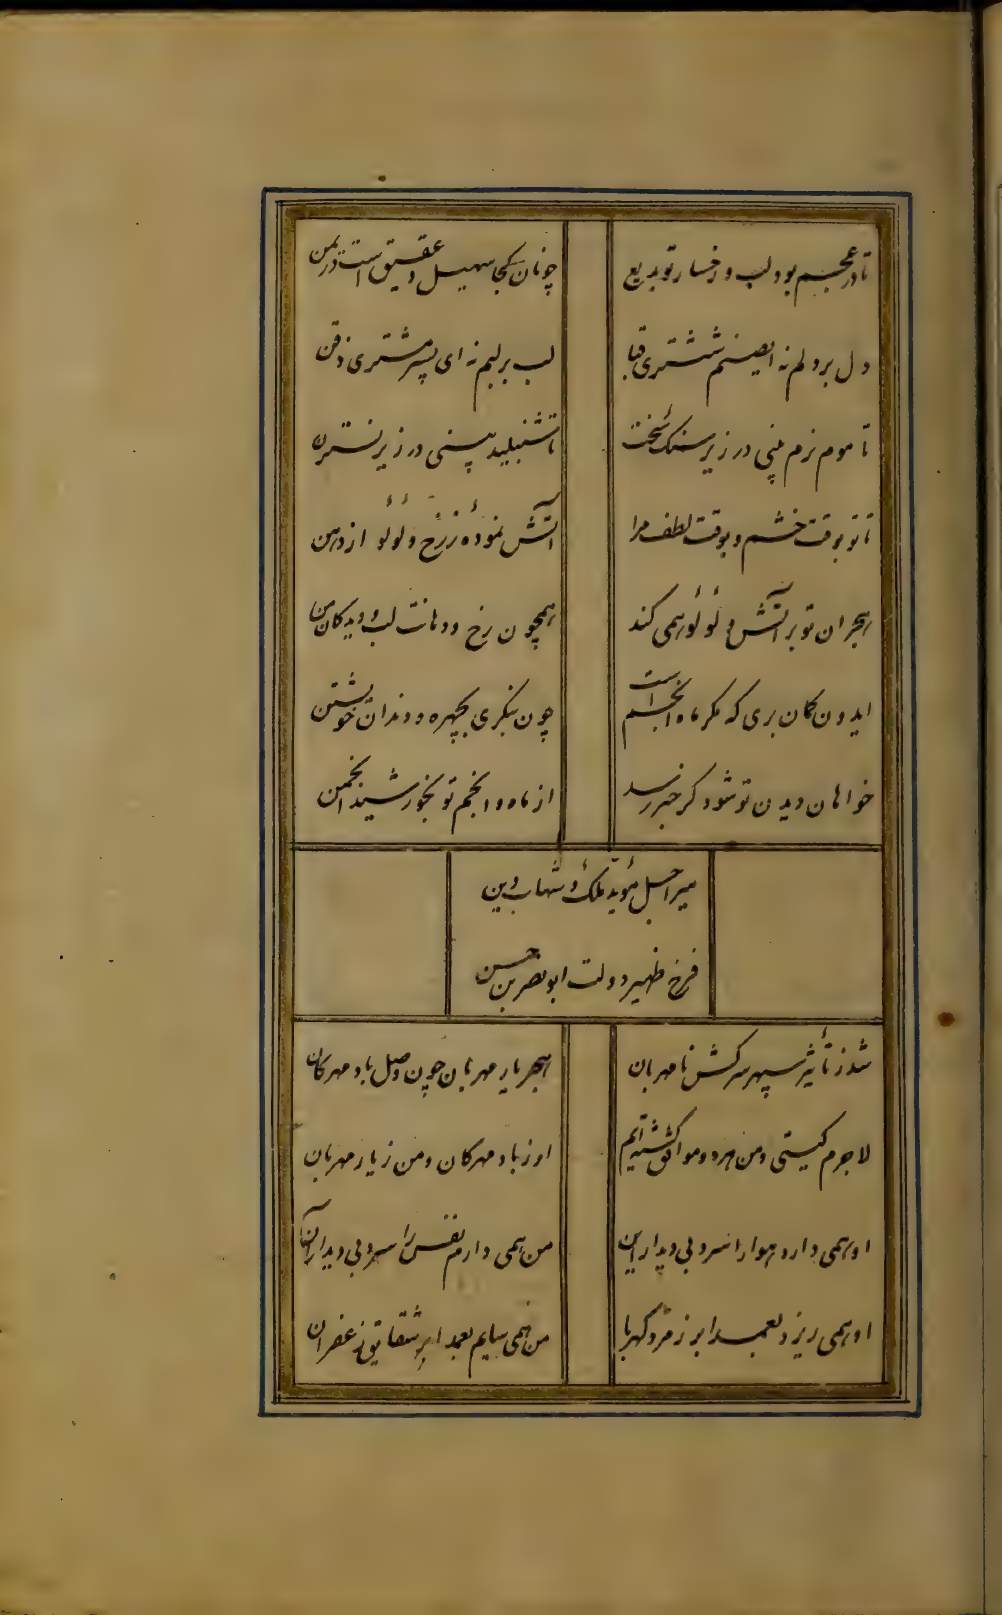 تا در عجم بود لب و رخسار تو بدیع
چونان کجا سهیل و عقیق است در یمن
دل بر دلم نه ایصنم شتری قبا
لب بر لبم نه ای پسر مشتری ذقن
تا موم نرم بینی در زیر سنگ سخت
تا شنبلید بینی در زیر نسترن
تا تو بوقت خشم و بوقت لطف مرا
آتش نمودهٔ ز رخ و لؤلؤ از دهن
هجران تو بر آتش و لؤلؤ همی کند
همچون رخ و دهانت لب و دیدکان من
ایدون کمان بری که مکر ماه و انجم است
چون بنکری بچهره و دندان خویشتن
خواهان دیدن تو شود کر خبر رسد
از ماه و انجم تو بخورشید انجمن
میر اجل مؤید ملک و شهاب دین
فرخ ظهیر دولت ابونصر بن حسن
شد ز تأثیر سپهر سرکش نامهربان
هجر یار مهربان چون وصل باد مهرکان
لاجرم کیتی و من هر دو موافق کشته‌ایم
او ز باد مهرکان و من ز یار مهربان
او همی دارد هوا را سرد بی دیدار این
من همی دارم نفس را سرد بی دیدار آن
او همی ریزد بعمدا بر زمرد کهربا
من همی سایم بعمدا بر شقایق زعفران